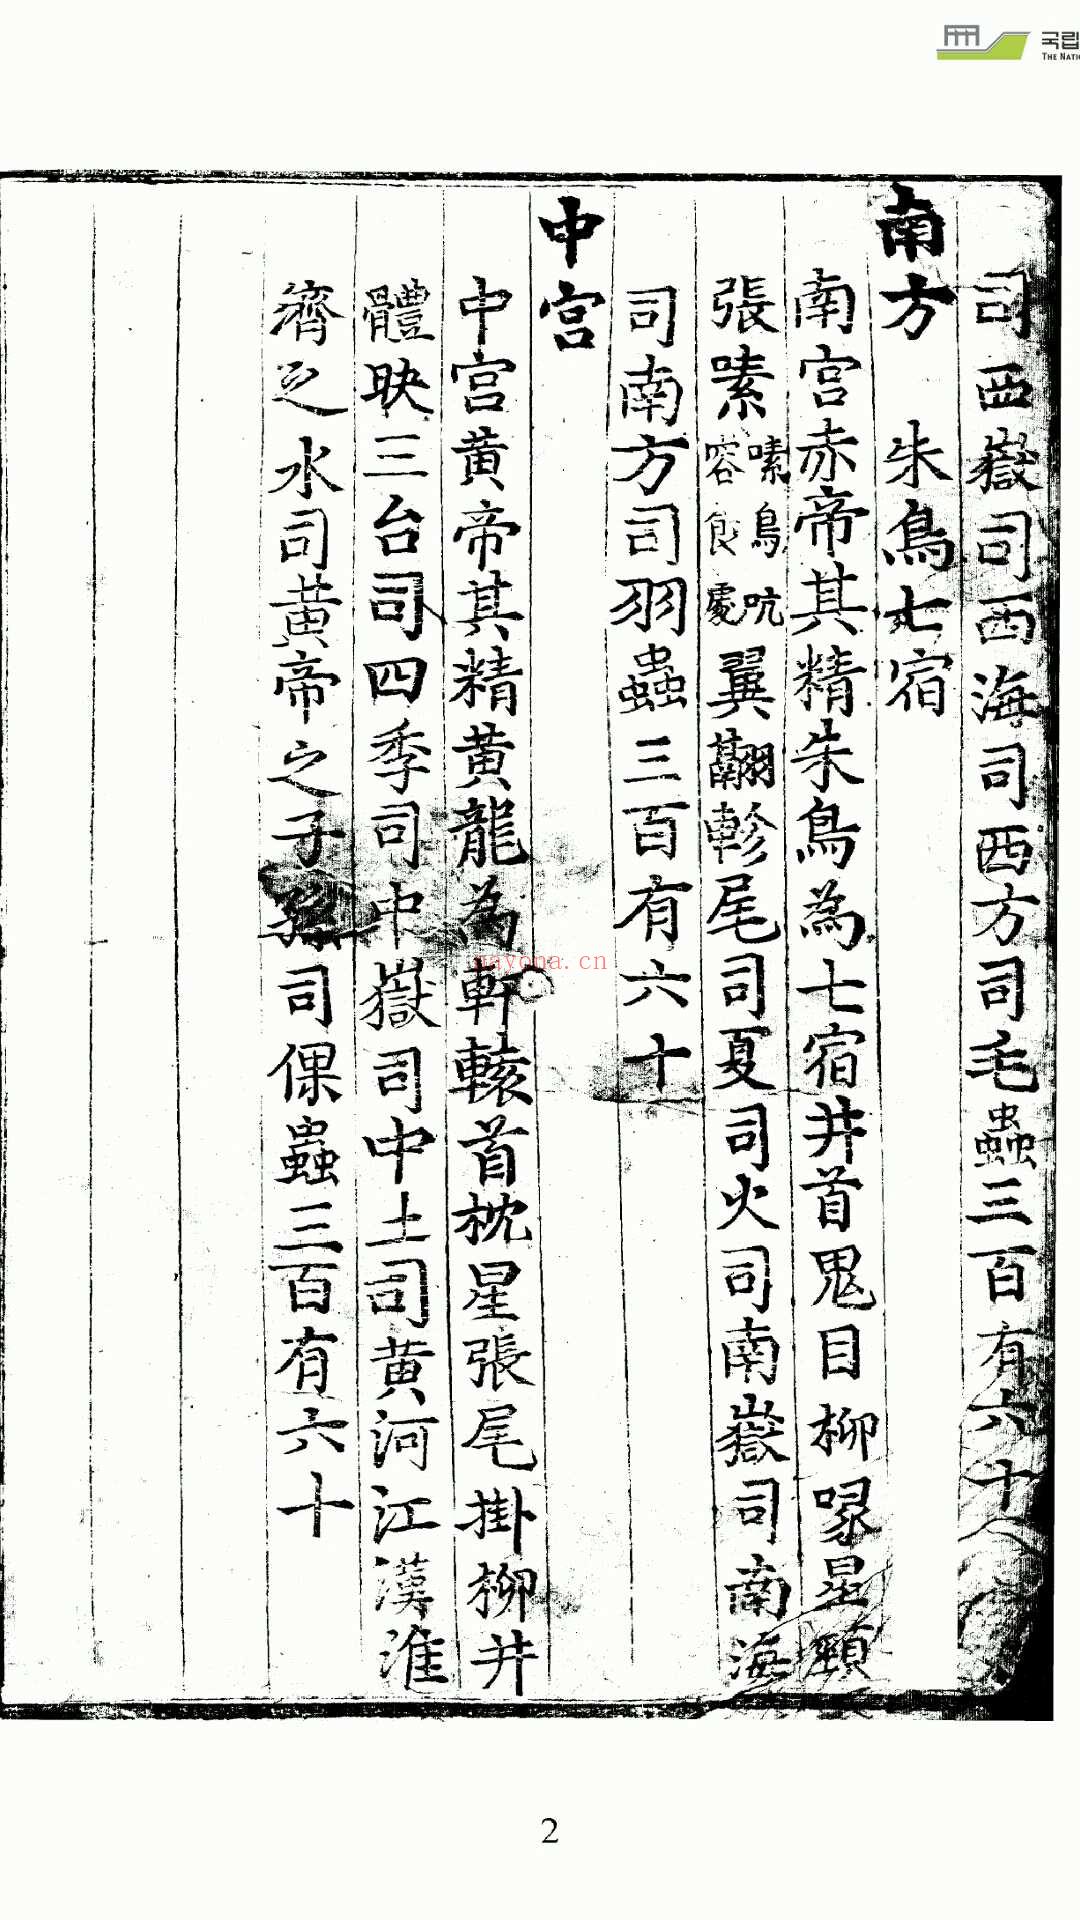 국립
THE NATI
司西嶽司西海司西方司毛蟲三百有六十
南方　朱鳥七宿
南宮赤帝其精朱鳥為七宿井首鬼目柳喙星頸
張嗉嗉鳥吭容食處翼翮軫尾司夏司火司南嶽司南海
司南方司羽蟲三百有六十
中宮
中宮黃帝其精黃龍為軒轅首枕星張尾掛柳井
體映三台司四季司中嶽司中土司黃河江漢淮
濟之水司黃帝之子孫司倮蟲三百有六十
nayona.cn
2